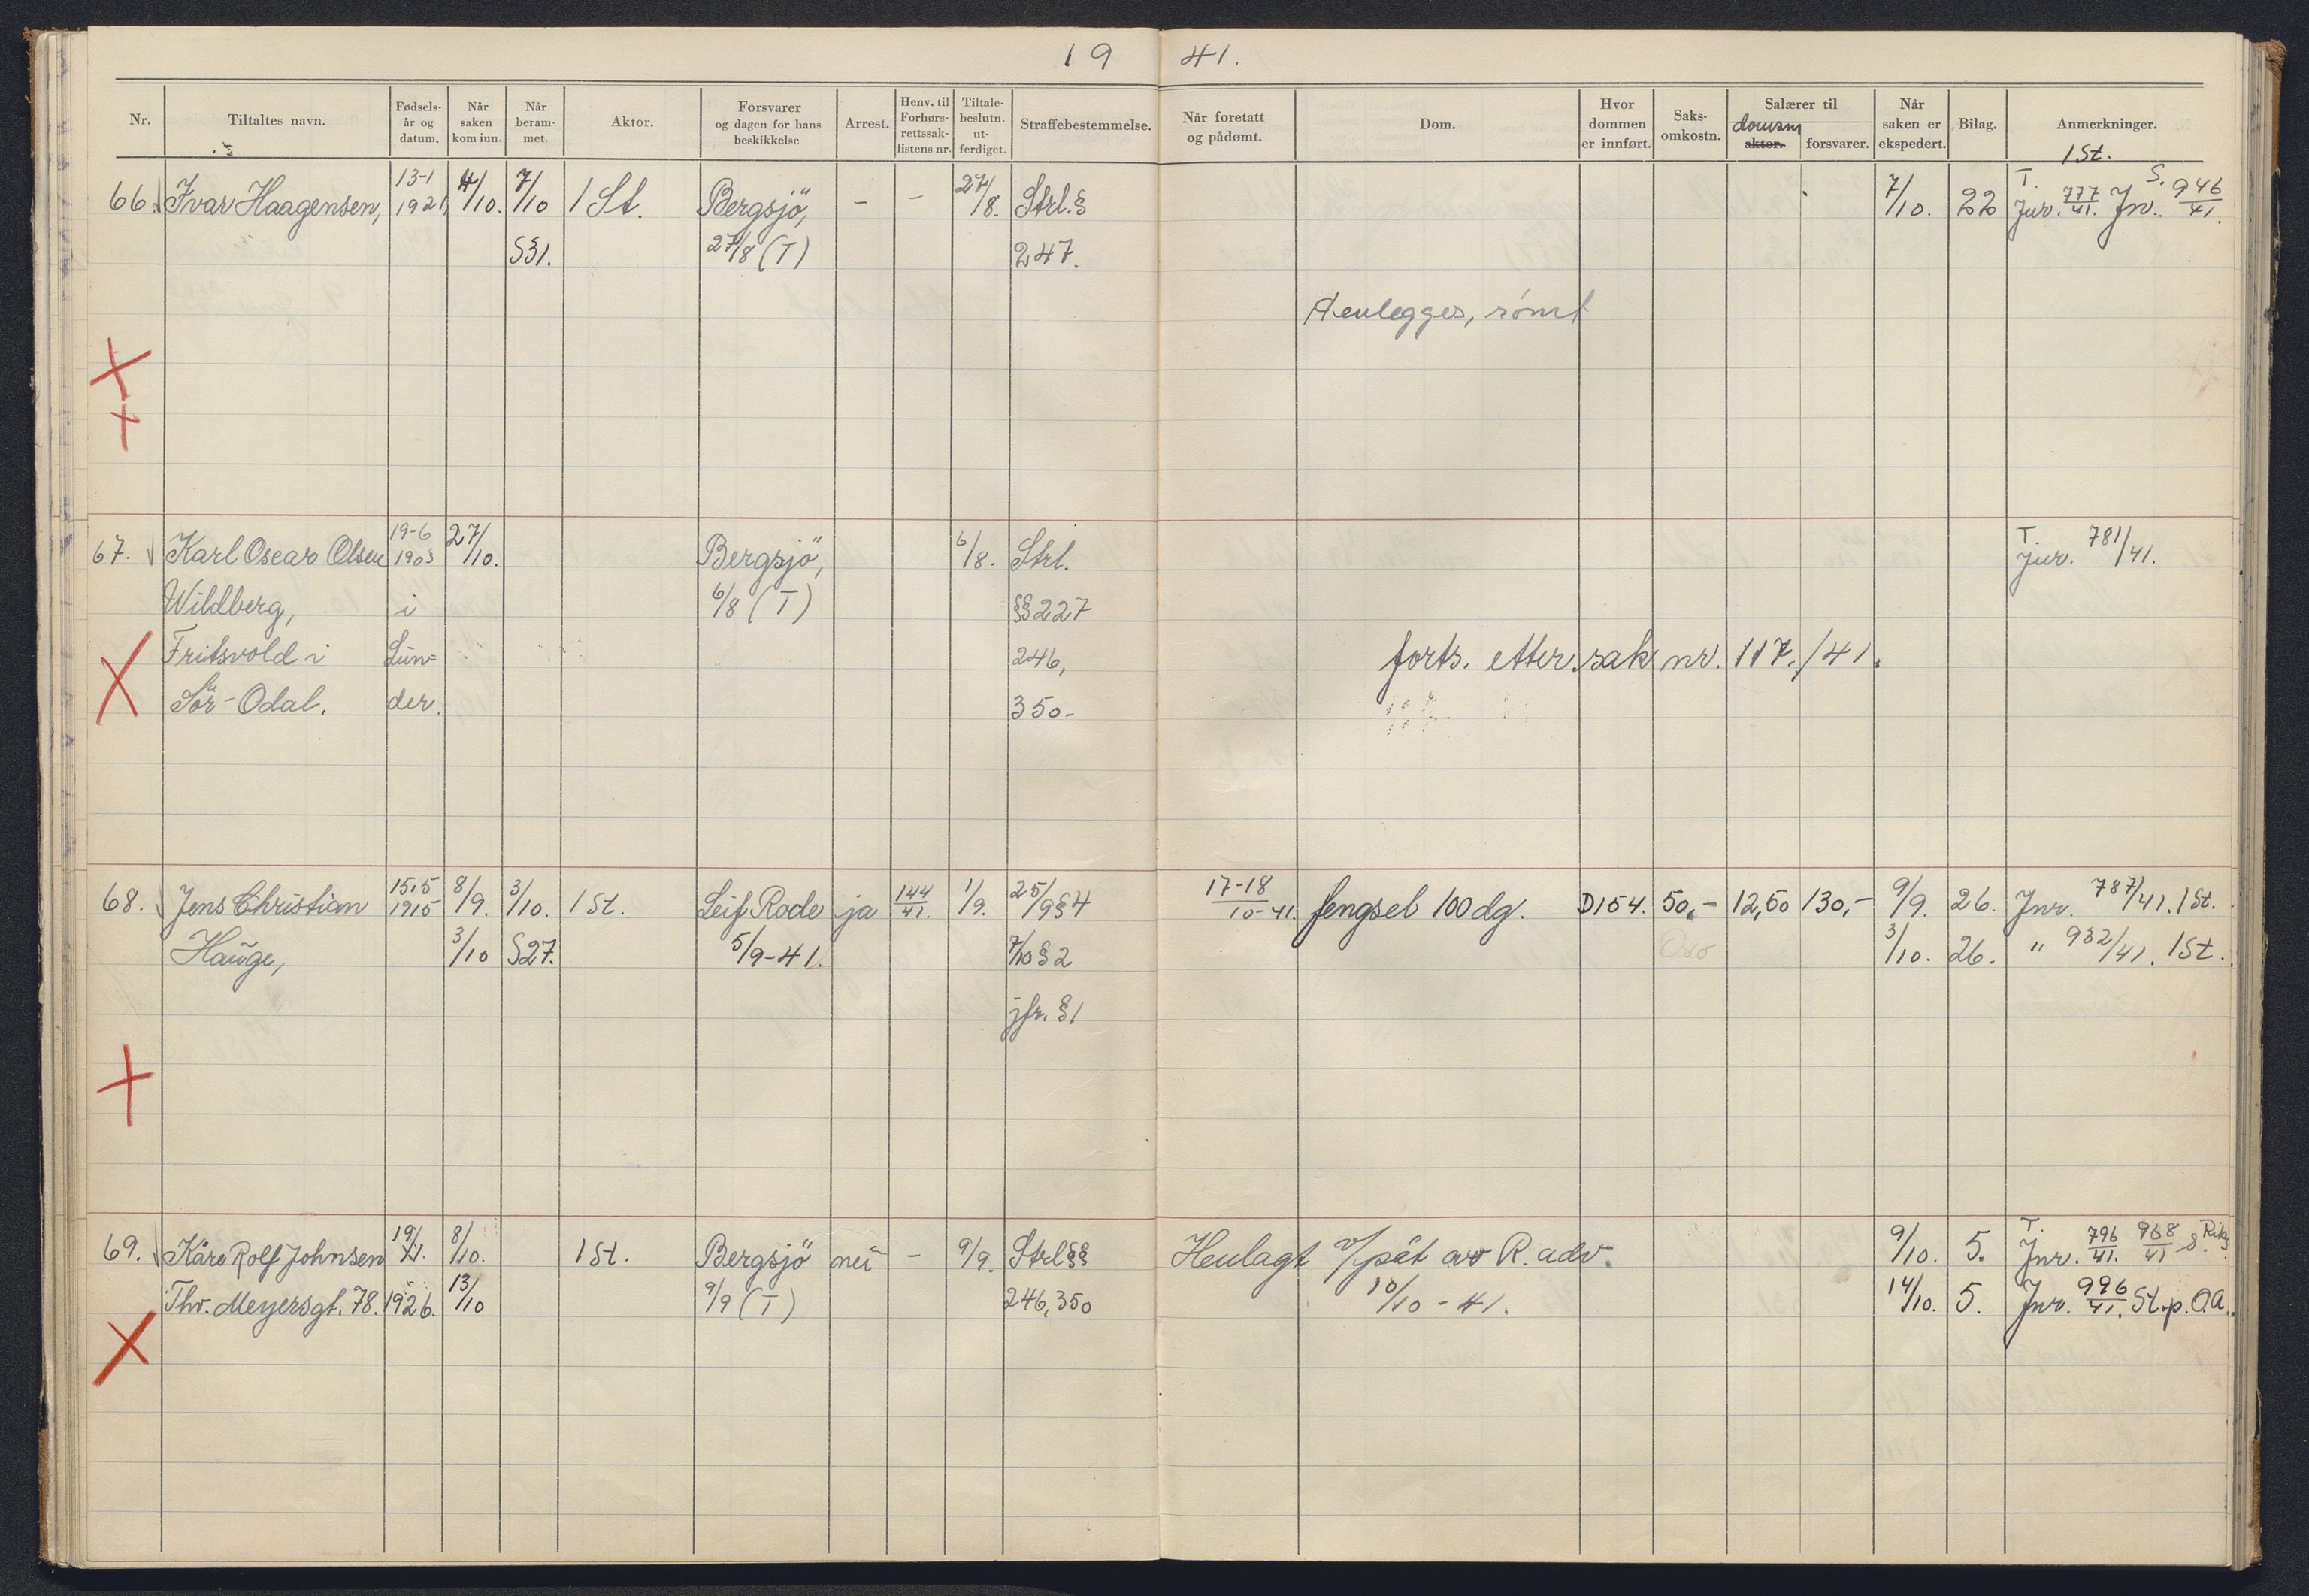 19 41.
Nr. Tiltaltes navn. Fødsels- år og datum. Når saken kom inn. Når beram- met. Aktor. Forsvarer og dagen for hans beskikkelse Arrest. Henv. til Forhørs- rettssak- listens nr. Tiltale- beslutn. ut- ferdiget. Straffebestemmelse. Når foretatt og pådømt. Dom. Hvor dommen er innført. Saks- omkostn. Salærer til domsm aktor. forsvarer. Når saken er ekspedert. Bilag. Anmerkninger.
1 St.
66. Ivar Haagensen, 13-1 1921, 4/10. 7/10 1 St. Bergsjö, - - 27/8. Strl. § 7/10. 22 T. Jnr. 777/41. Jnr. S. 946/41.
S31. 27/8 (T) 247.
Henlegges, römt
67. Karl Oscar Olsen 19-6 1903 27/10. Bergsjö, 6/8. Strl. T. Jnr. 781/41.
Wildberg, i 6/8 (T) §§ 227
Fritsvold i Lun= 246, forts. etter sak nr. 117./41.
Sör-Odal. der. 350-
68. Jens Christian 15.5 1915 8/9. 3/10. 1 St. Leif Rode ja 144/41. 1/9. 25/9 § 4 17-18/10-41. fengsel 100 dg. D154. 50,- 12,50 130,- 9/9. 26. Jnr. 787/41. 1 St.
Hauge, 3/10 S27. 5/9-41. 7/10 § 2 3/10. 26. " 932/41. 1 St.
jfr. § 1
69. Kåre Rolf Johnsen 19/XI. 8/10. 1 St. Bergsjö nei - 9/9. Strl §§ Henlagt v/påt av R. adv. 9/10. 5. T. Jnr. 796/41. 968/41 S. Riks
Thv. Meyersgt. 78. 1926. 13/10 9/9 (T) 246, 350 10/10-41. 14/10. 5. Jnr. 996/41. St. p. O.A.